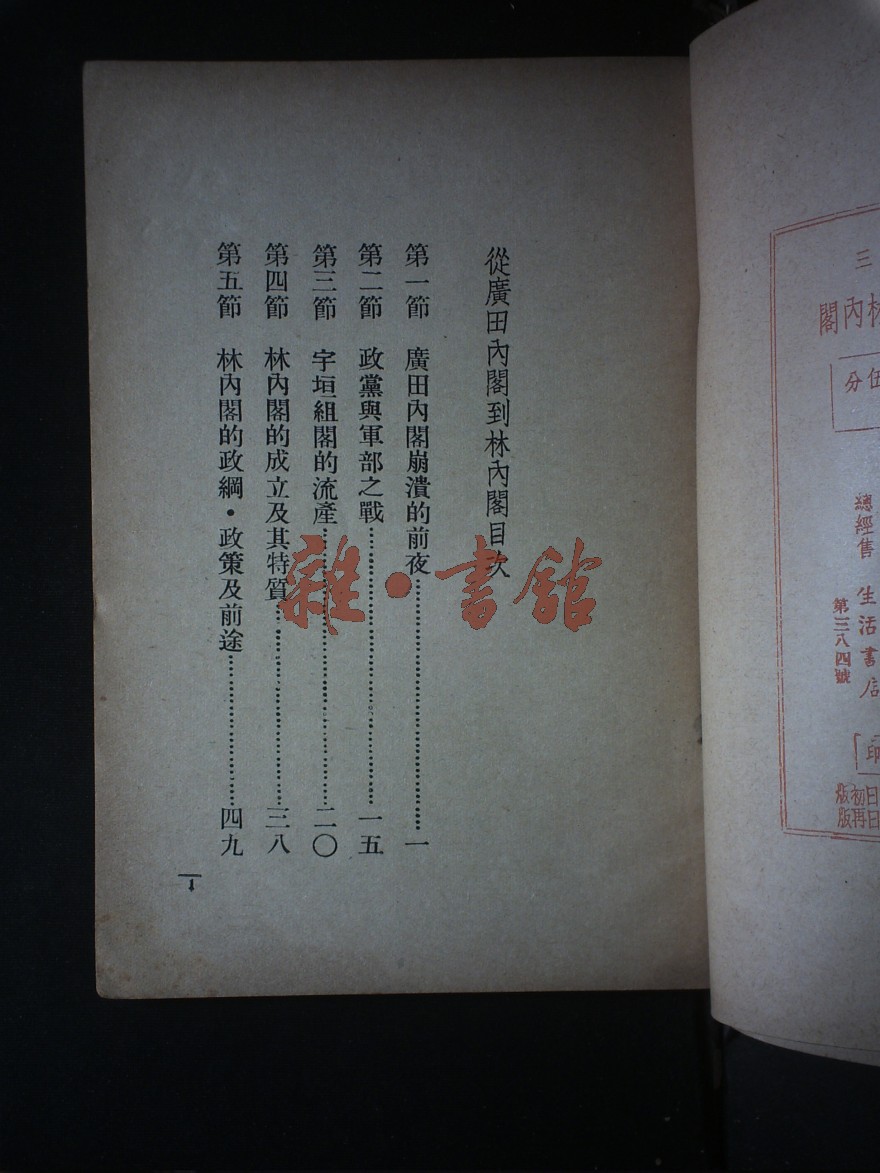 從廣田內閣到林內閣目次
第一節 廣田內閣崩潰的前夜……………………一
第二節 政黨與軍部之戰……………………一五
第三節 宇垣組閣的流產……………………二〇
第四節 林內閣的成立及其特質……………………三八
第五節 林內閣的政綱・政策及前途……………………四九
1
雜・書館
三
林內閣
伍分
總經售 生活書店
第三八四號
印
日初版
日再版